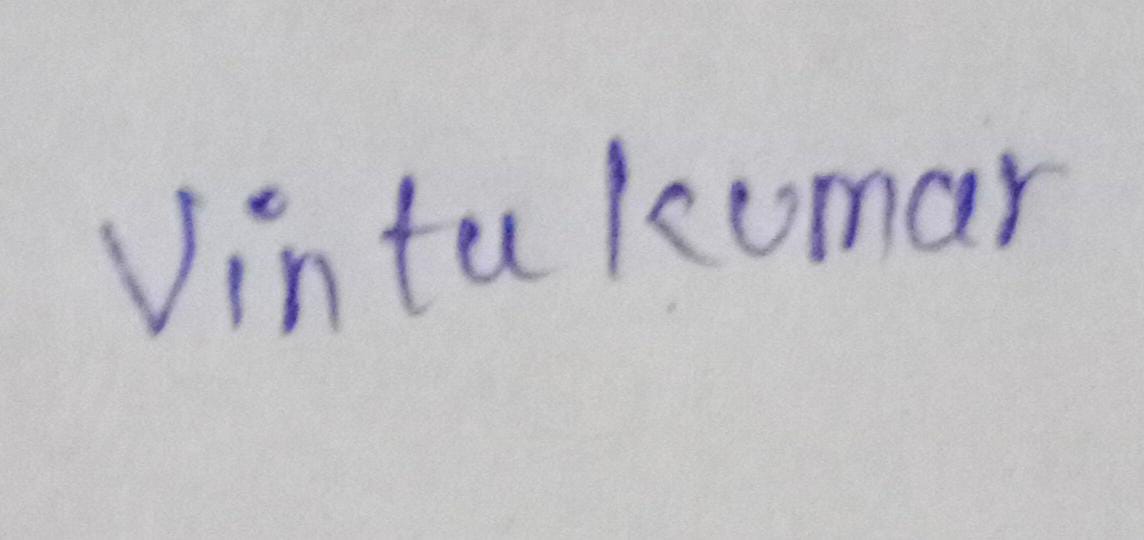 Vintu kumar